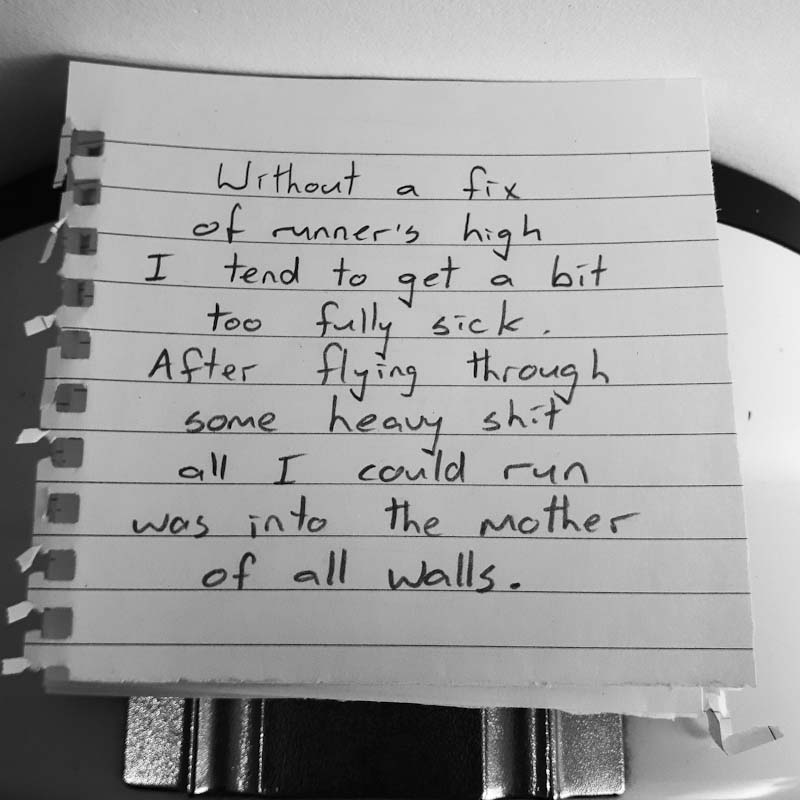 Without a fix
of runner's high
I tend to get a bit
too fully sick.
After flying through
some heavy shit
all I could run
was into the mother
of all walls.